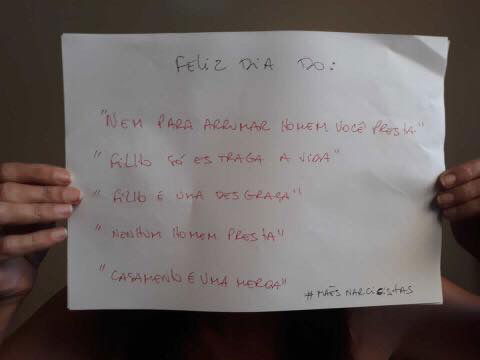 FELIZ DIA DO:
"NEM PARA ARRUMAR HOMEM VOCÊ PRESTA"
"FILHO SÓ ESTRAGA A VIDA"
"FILHO É UMA DESGRAÇA"
"NENHUM HOMEM PRESTA"
"CASAMENTO É UMA MERDA"
#MÃES NARCISISTAS